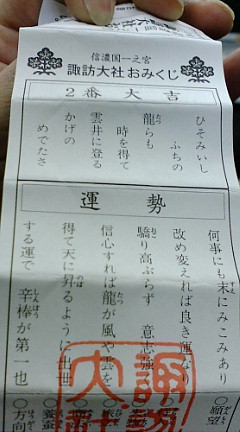 信濃国一之宮
諏訪大社おみくじ
2番大吉
ひそみいし
ふちの
龍らも
時を得て
雲井に登る
かげの
めでたさ
運勢
何事にも末にみこみあり
改め変えれば良き運なり
驕り高ぶらず 意志強
信心すれば龍が風や雲を
得て天に昇るように出世
する運で 辛棒が第一也
○願望
○方向